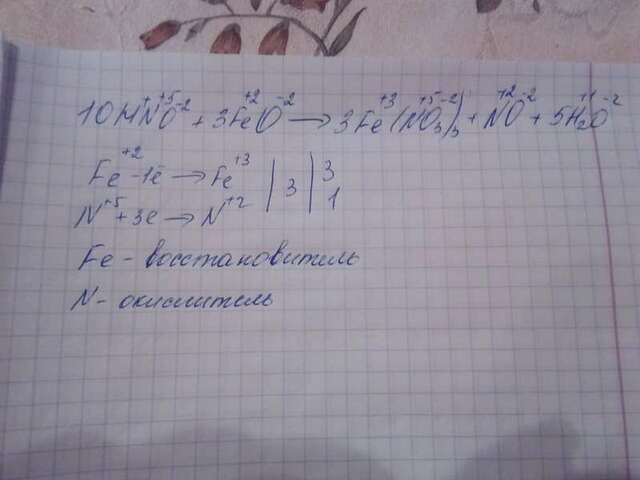 10HN⁺¹⁺⁵O⁻² + 3Fe⁺²O⁻² → 3Fe⁺³(N⁺⁵O₃⁻²)₃ + N⁺²O⁻² + 5H₂⁺¹O⁻²
Fe⁺² - 1e → Fe⁺³ | 3 | 3
N⁺⁵ + 3e → N⁺² 1
Fe - восстановитель
N - окислитель